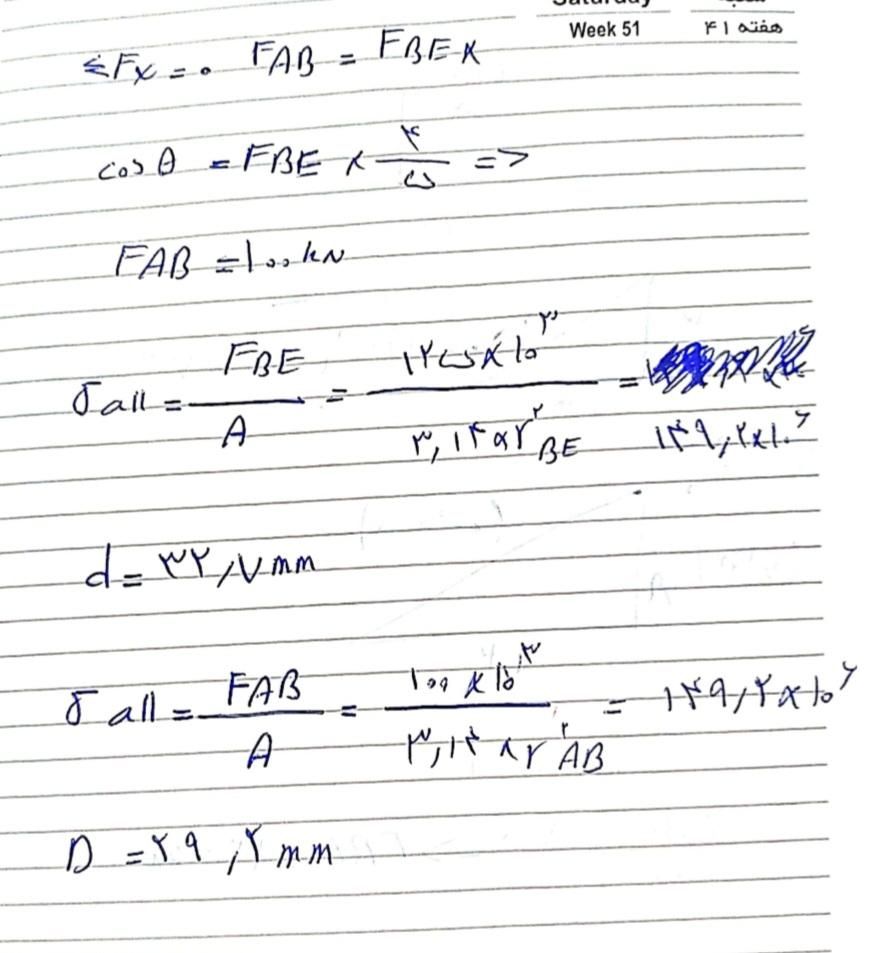 Week 51 هفته ۴۱
ΣFx = ۰ FAB = FBE x
cos θ = FBE x ۴/۵ =>
FAB = ۱۰۰ kN
σ all = FBE / A = ۱۲۵ x ۱۰^۳ / ۳,۱۴ x r^۲ BE = ۱۴۹,۲ x ۱۰^۶
d = ۳۲,۷ mm
σ all = FAB / A = ۱۰۰ x ۱۰^۳ / ۳,۱۴ x r^۲ AB = ۱۴۹,۲ x ۱۰^۶
D = ۲۹,۲ mm